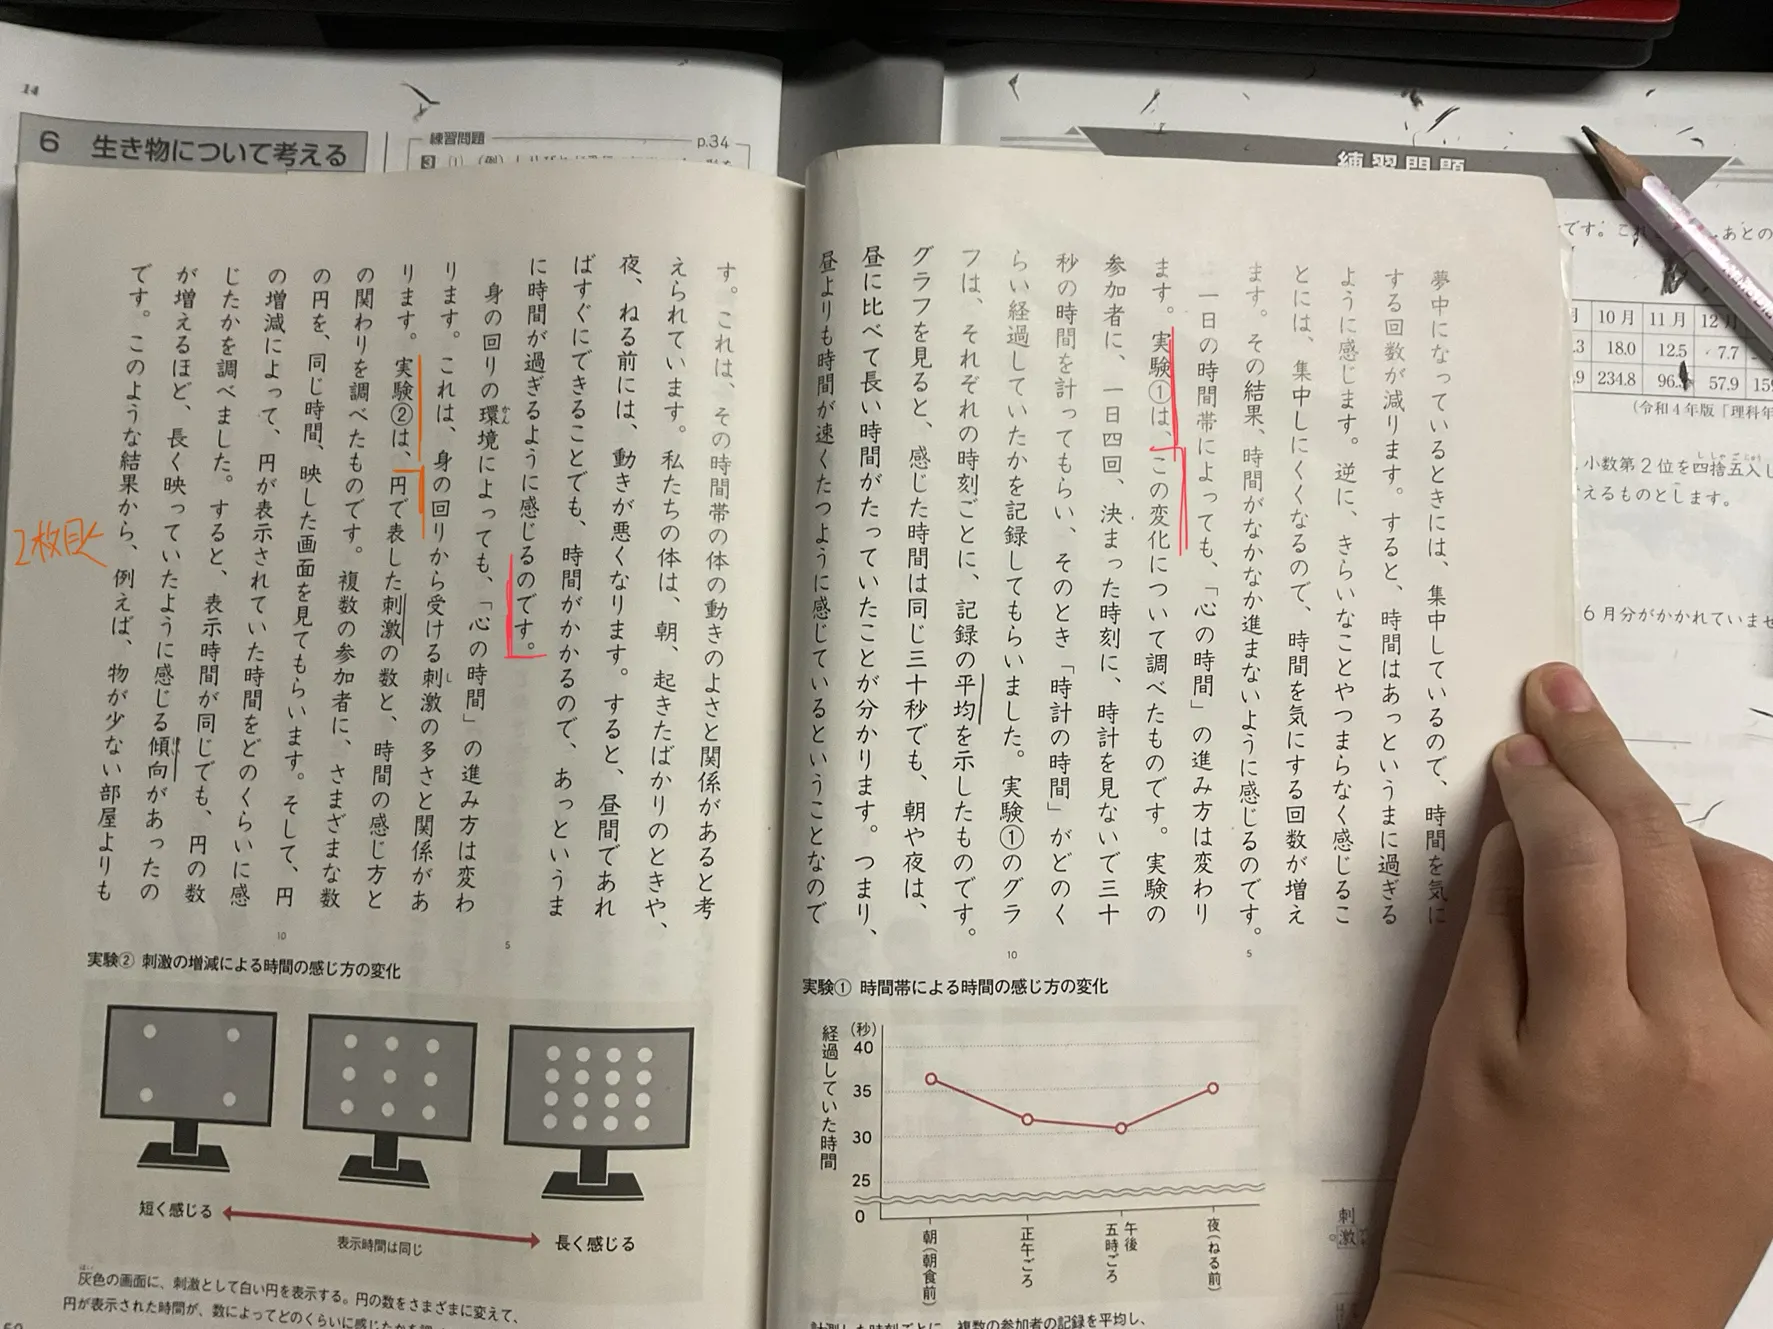 夢中になっているときには、集中しているので、時間を気に
する回数が減ります。すると、時間はあっというまに過ぎる
ように感じます。逆に、きらいなことやつまらなく感じるこ
とには、集中しにくくなるので、時間を気にする回数が増え
ます。その結果、時間がなかなか進まないように感じるのです。
一日の時間帯によっても、「心の時間」の進み方は変わり
ます。実験①は、この変化について調べたものです。実験の
参加者に、一日四回、決まった時刻に、時計を見ないで三十
秒の時間を計ってもらい、そのとき「時計の時間」がどのく
らい経過していたかを記録してもらいました。実験①のグラ
フは、それぞれの時刻ごとに、記録の平均を示したものです。
グラフを見ると、感じた時間は同じ三十秒でも、朝や夜は、
昼に比べて長い時間がたっていたことが分かります。つまり、
昼よりも時間が速くたつように感じているということなので
5
10
実験① 時間帯による時間の感じ方の変化
経過していた時間
(秒)
40
35
30
25
0
朝(朝食前)
正午ごろ
午後
五時ごろ
夜(ねる前)
複数の参加者の記録を平均し、
す。これは、その時間帯の体の動きのよさと関係があると考
えられています。私たちの体は、朝、起きたばかりのときや、
夜、ねる前には、動きが悪くなります。すると、昼間であれ
ばすぐにできることでも、時間がかかるので、あっというま
に時間が過ぎるように感じるのです。
身の回りの環境によっても、「心の時間」の進み方は変わ
かん
ります。これは、身の回りから受ける刺激の多さと関係があ
し
ります。実験②は、円で表した刺激の数と、時間の感じ方と
の関わりを調べたものです。複数の参加者に、さまざまな数
の円を、同じ時間、映した画面を見てもらいます。そして、円
の増減によって、円が表示されていた時間をどのくらいに感
じたかを調べました。すると、表示時間が同じでも、円の数
が増えるほど、長く映っていたように感じる傾向があったの
けい
です。このような結果から、例えば、物が少ない部屋よりも
2枚目
5
10
実験② 刺激の増減による時間の感じ方の変化
短く感じる
表示時間は同じ
長く感じる
灰色の画面に、刺激として白い円を表示する。円の数をさまざまに変えて、
はい
円が表示された時間が、数によってどのくらいに感じたかを
14
6 生き物について考える
練習問題
p.34
3 (1)
練習問題
です。
あとの
10月 11月 12
18.0 12.5 7.7
234.8 96. 57.9
(令和4年版『理科年
小数第2位を四捨五入し
ししゃごにゅう
えるものとします。
6月分がかかれていませ
刺激